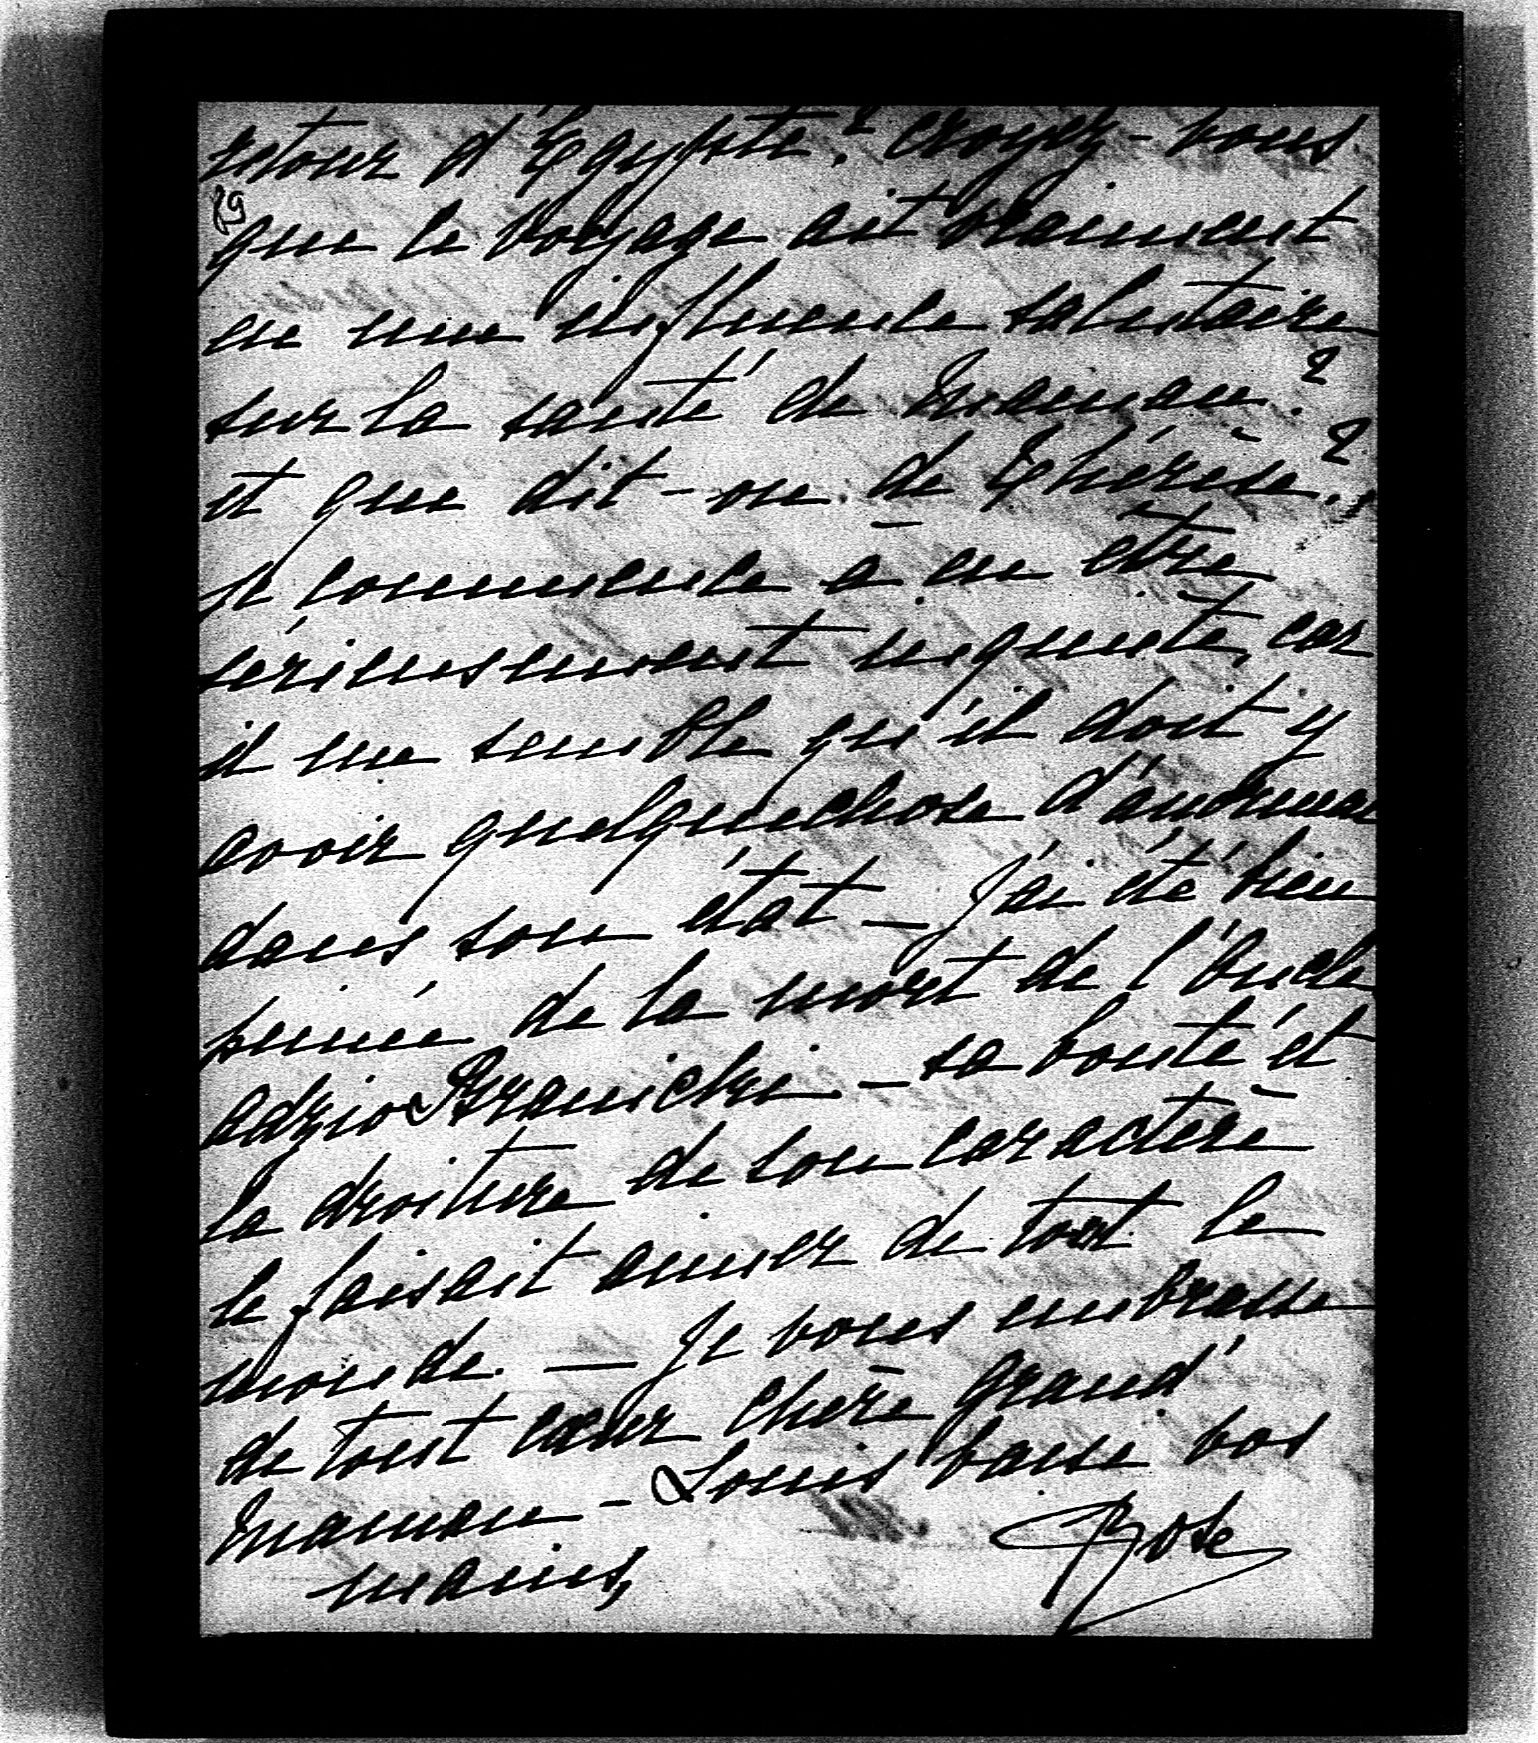 retour d'Égypte? croyez-vous
29
que le voyage ait vraiment
eu une influence salutaire
sur la santé de Maman?
et que dit-on de Thérèse?
je commence à en être
sérieusement inquiète, car
il me semble qu'il doit y
avoir quelquechose d'anormal
dans son état — j'ai été bien
peinée de la mort de l'Oncle
Adzio Branicki — sa bonté et
la droiture de son caractère
le faisait aimer de tout le
monde. — Je vous embrasse
de tout cœur chère grand'
Maman — Louis baise vos
mains,
Rose